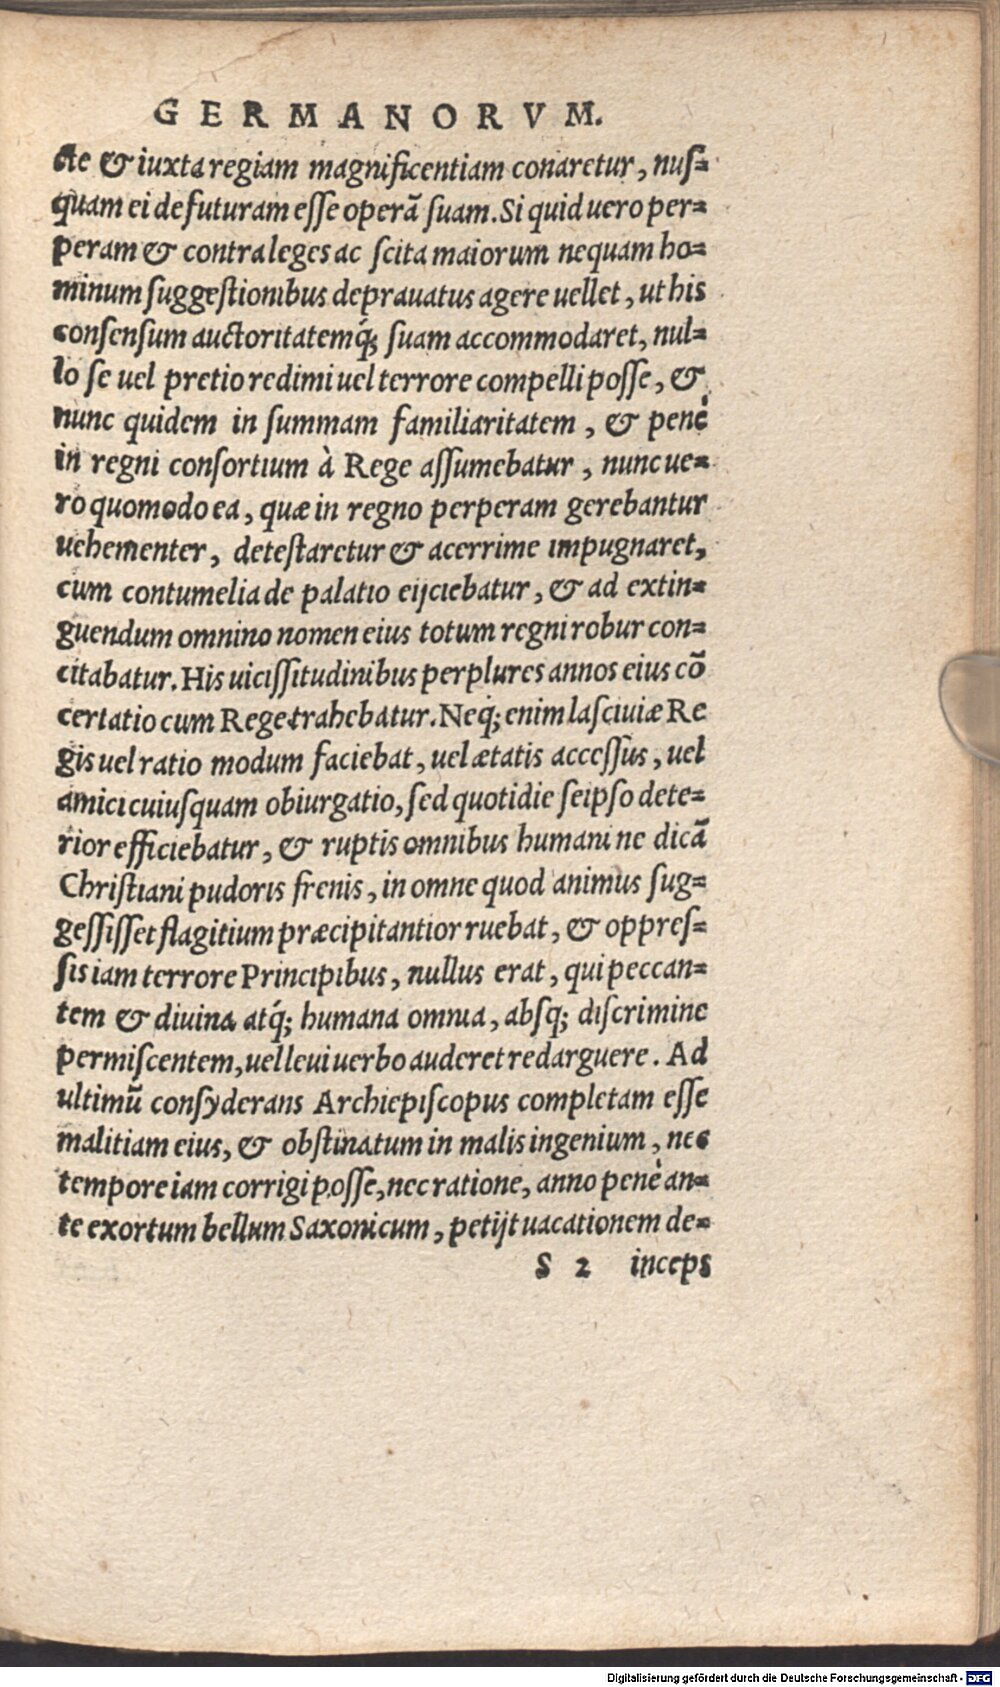 GERMANORVM.
cte & iuxta regiam magnificentiam conaretur, nuſ=
quam ei defuturam eſſe operã ſuam. Si quid uero per=
peram & contra leges ac ſcita maiorum nequam ho=
minum ſuggeſtionibus deprauatus agere uellet, ut his
conſenſum auctoritatemq́; ſuam accommodaret, nul=
lo ſe uel pretio redimi uel terrore compelli poſſe, &
nunc quidem in ſummam familiaritatem, & penè
in regni conſortium à Rege aſſumebatur, nunc ue=
ro quomodo ea, quæ in regno perperam gerebantur
uehementer, deteſtaretur & acerrime impugnaret,
cum contumelia de palatio eijciebatur, & ad extin=
guendum omnino nomen eius totum regni robur con=
citabatur. His uiciſſitudinibus perplures annos eius cõ
certatio cum Rege trahebatur. Neq́; enim laſciuiæ Re
gis uel ratio modum faciebat, uel ætatis acceſſus, uel
amici cuiuſquam obiurgatio, ſed quotidie ſeipſo dete=
rior efficiebatur, & ruptis omnibus humani ne dicã
Chriſtiani pudoris frenis, in omne quod animus ſug=
geſſiſſet flagitium præcipitantior ruebat, & oppreſ=
ſis iam terrore Principibus, nullus erat, qui peccan=
tem & diuina atq́; humana omnia, abſq; diſcrimine
permiſcentem, uel leui uerbo auderet redarguere. Ad
ultimũ conſyderans Archiepiſcopus completam eſſe
malitiam eius, & obſtinatum in malis ingenium, nec
tempore iam corrigi poſſe, nec ratione, anno penè an=
te exortum bellum Saxonicum, petijt uacationem de=
S 2 inceps
Digitalisierung gefördert durch die Deutsche Forschungsgemeinschaft - DFG